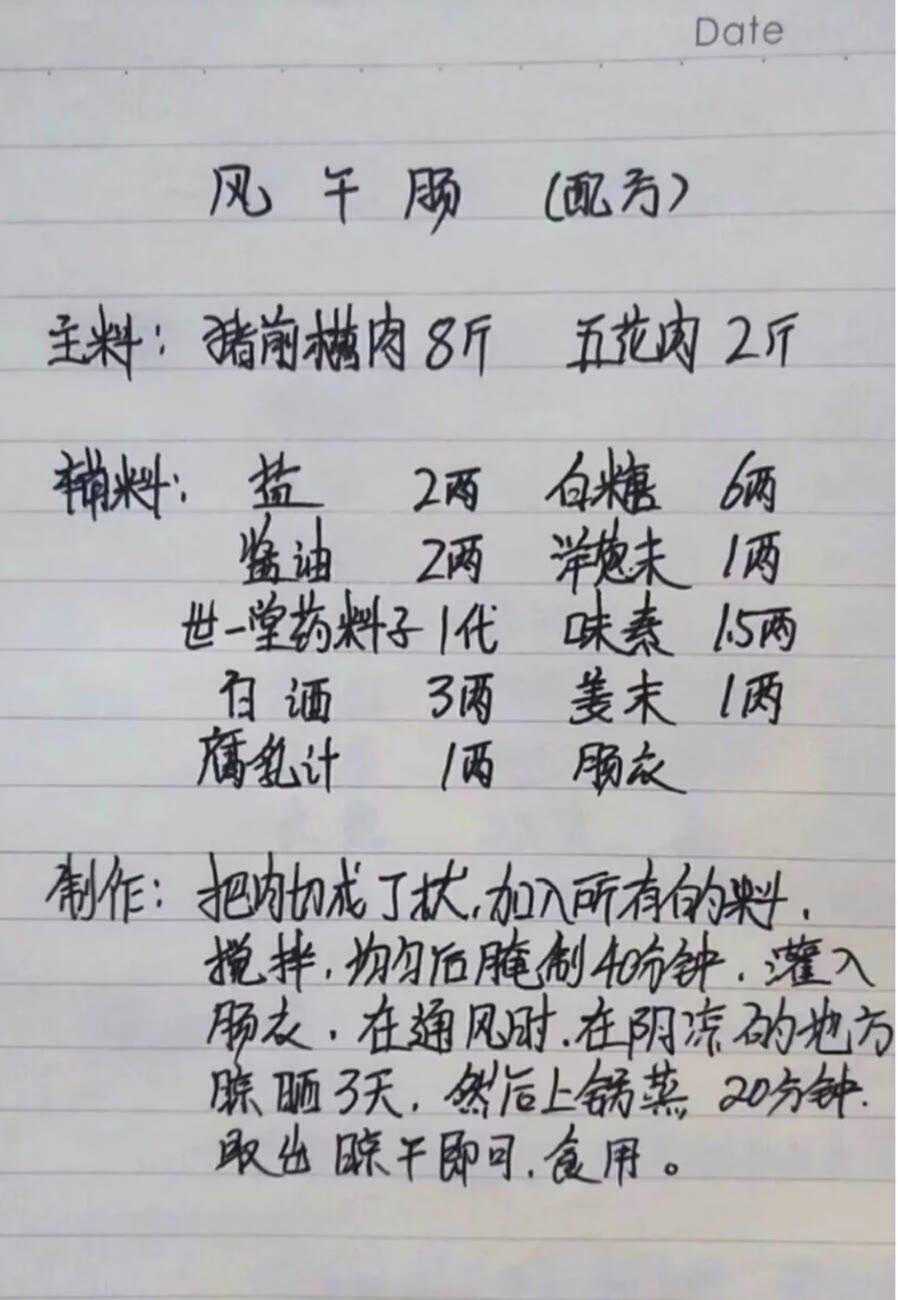 Date
风干肠（配方）
主料：猪前槽肉8斤 五花肉2斤
辅料：盐 2两 白糖 6两
酱油 2两 洋葱末 1两
世一堂药料子1代 味素 1.5两
白酒 3两 姜末 1两
腐乳计 1两 肠衣
制作：把肉切成丁状，加入所有的料，
搅拌，均匀后腌制40分钟，灌入
肠衣，在通风时，在阴凉的地方
晾晒3天，然后上锅蒸 20分钟.
取出晾干即可，食用。